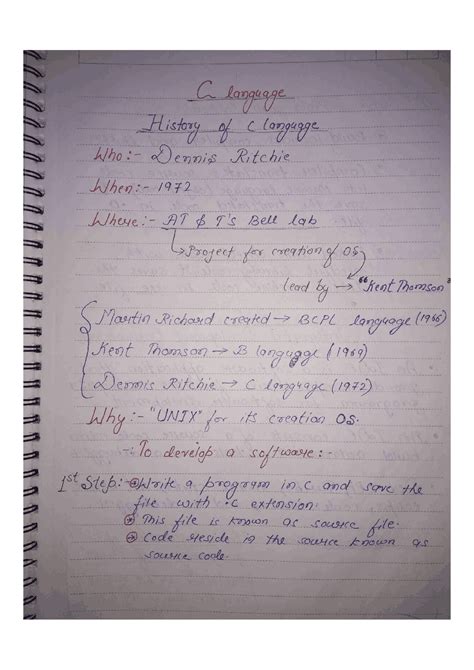 C language
History of C language
Who:- Dennis Ritchie
When:- 1972
Where:- AT & T's Bell lab
Project for creation of OS
lead by → "Kent Thomson"
Martin Richard created → BCPL language (1966)
Kent Thomson → B language (1969)
Dennis Ritchie → C language (1972)
Why:- "UNIX" for its creation OS.
To develop a software:-
1st Step:- Write a program in C and save the
file with .C extension.
This file is known as source file.
Code reside in the source known as
source code.